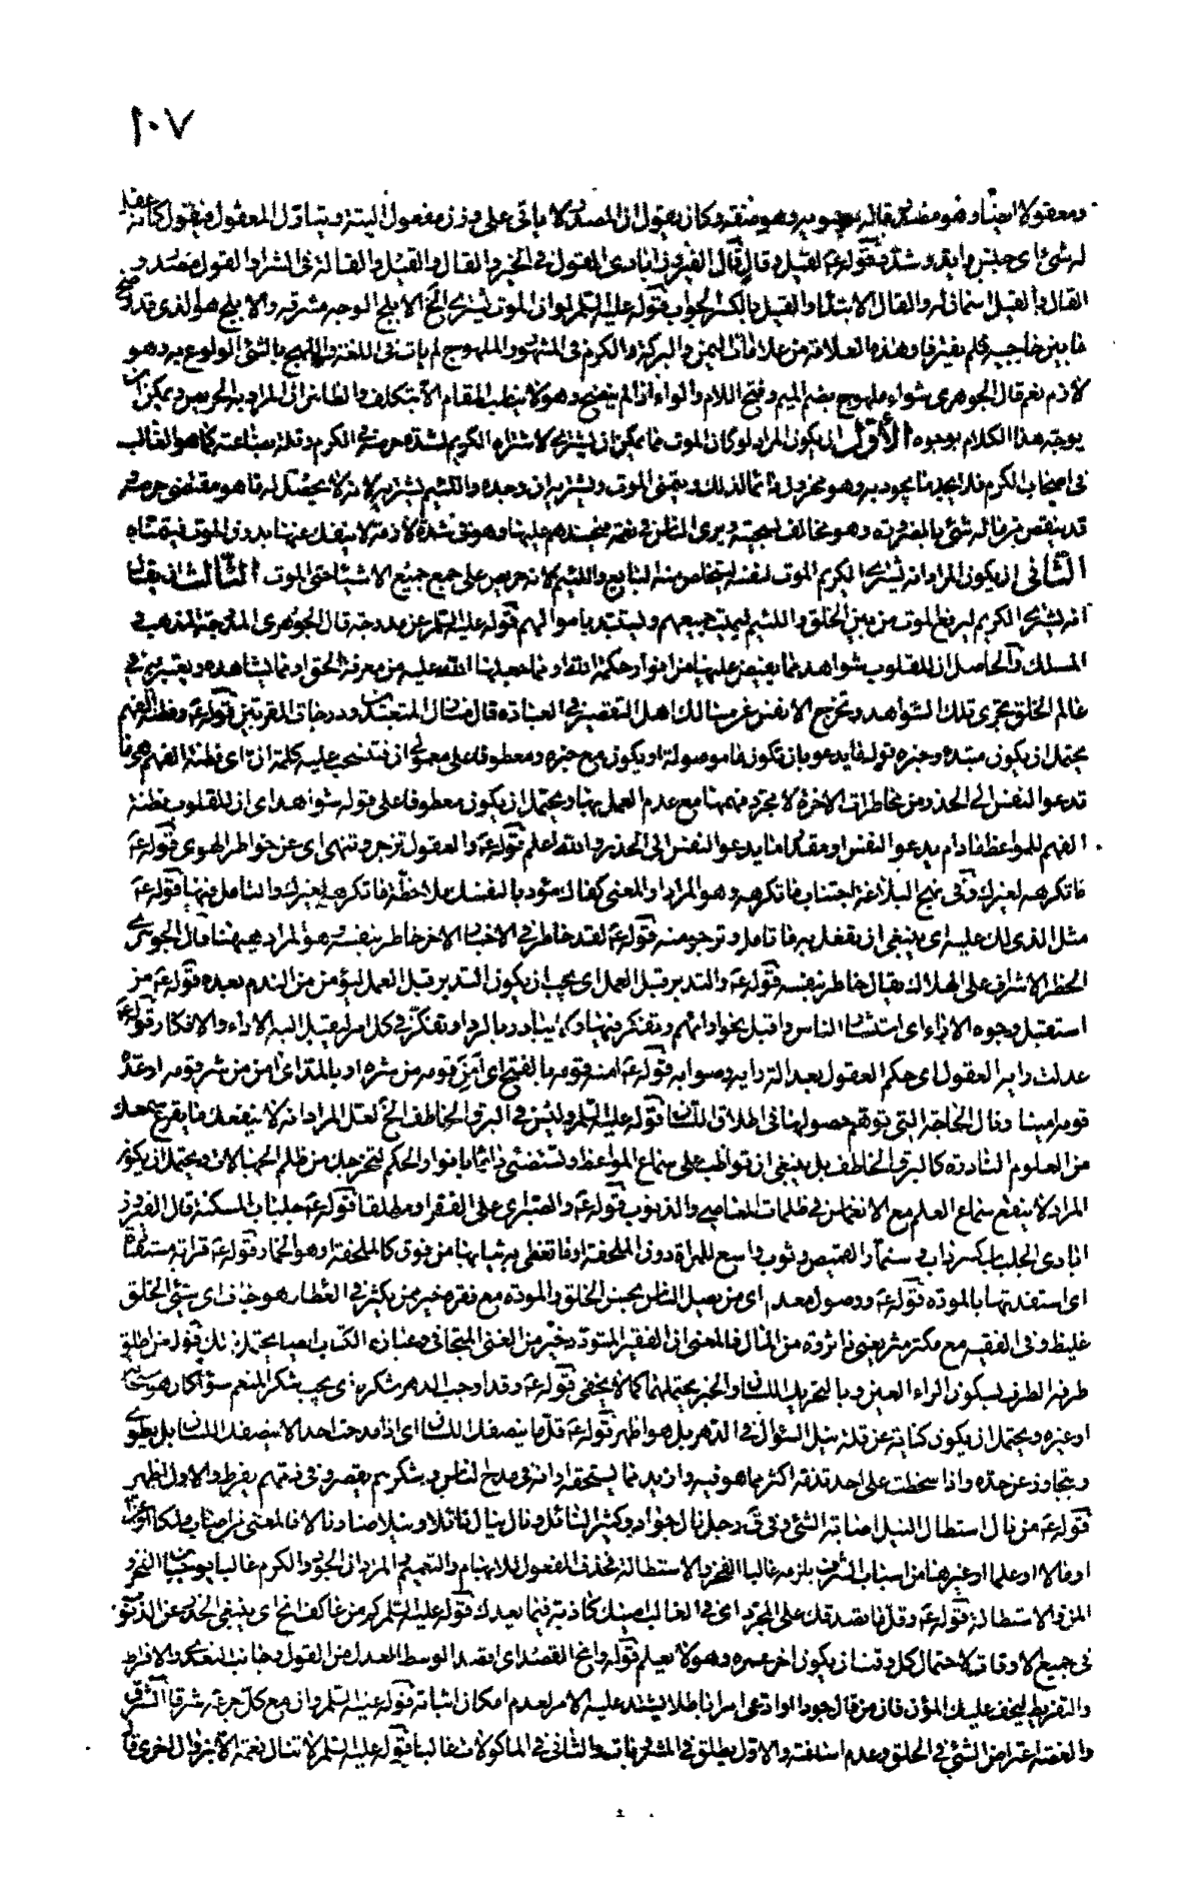 ١٠٧
ومعقولا ايضا وهو مصدر وقال سيبويه هو صفة وكان يقول ان المصدر لا ياتى على وزن مفعول البتة ويتاول المعقول فيقول كانه عقل
له شئ اى حبس وايد وشدد قوله ع القيل وقال قال الفيروزآبادى القول فى الخير والقال والقيل والقالة فى الشر او القول مصدر و
القال والقيل اسمان له والقال الابتداء والقيل بالكسر الجواب قوله عليه السلم لو ان الموت يشترى الخ الابلج الوجه مشرقه والابلج هو الذى قد وضح
ما بين حاجبيه فلم يقترنا وهذه العلامة من علامات اليمن والبركة والكرم فى المشهور والملهوج لم يات فى اللغة واللهج بالشئ الولوع به وهو
لازم نعم قال الجوهرى شواء ملهوج بضم الميم وفتح اللام والواو اذا لم ينضج وهو لا يناسب المقام الا بتكلف والظاهر ان المراد به الحريص ويمكن ان
يوجه هذا الكلام بوجوه الأول ان يكون المراد لو كان الموت مما يمكن ان يشترى لاشتراه الكريم لشدة حرصه فى الكرم وقلة بضاعته كما هو الغالب
فى اصحاب الكرم فلا يجد ما يجود به وهو محزون دائما لذلك ويتمنى الموت ويشتريه ان وجده واللئيم يشتريه لانه لا يحصل له ما هو مقتضى حرصه
قد ينقص من ماله شئ بالضرورة وهو مخالف لسجيته ويرى الناس فى نعمة فيحسدهم عليها وهو فى شدة لازمة لا ينفك عنها بدون الموت فيتمناه
الثانى ان يكون المراد انه يشترى الكريم الموت لنفسه ليتخلص منه البايع واللئيم لانه حريص على جمع جميع الاشياء حتى الموت الثالث ان يقال
انه يشترى الكريم ليرفع الموت من بين الخلق واللئيم ليميت جميعهم ويستبد باموالهم قوله عليه السلم عن مدرجة قال الجوهرى المدرجة المذهب و
المسلك والحاصل ان للقلوب شواهد مما يفيض عليها من انوار حكمة الله او مما جعلها الله عليه من معرفة الحق او مما يشاهده ويعتبر به فى
عالم الخلق تجرى تلك الشواهد وتخرج الانفس عن مسالك اهل التقصير فى العبادة
يحتمل ان يكون مبتدء وخبره قوله ما يدعو بان تكون ما موصولة او يكون مع خبره ومعطوفا على معمولى ان فتنسحب عليه كلمة ان اى فطنة الفهم هى ما
تدعو النفس الى الحذر من مخاطرات الاخرة لا مجرد فهمها مع عدم العمل بها ويحتمل ان يكون معطوفا على قوله شواهد اى ان للقلوب فطنة
الفهم للمواعظ ما دام يدعو النفس او مقدار ما يدعو النفس الى الحذر والله اعلم قوله ع والعقول تزجر وتنهى اى عن خواطر الهوى قوله ع
ما تكرهه لغيرك وفى نهج البلاغة اجتناب ما تكرهه وهو المراد او المعنى كفاك مؤدبا لنفسك ملاحظة ما تكرهه لغيرك والتامل فيها قوله ع
مثل الذى لك عليه اى ينبغى ان يفعل به ما تامله وترجو منه قوله ع لقد خاطر فى الاخبار الاخر خاطر بنفسه هو المراد هيهنا قال الجوهرى
الخطر الاشراف على الهلاك يقال خاطر بنفسه قوله ع والتدبر قبل العمل اى يجب ان يكون التدبر قبل العمل ليؤمن من الندم بعده قوله ع من
استقبل وجوه الاراء اى استشار الناس واقبل نحو اراءهم وتفكر فيها ولا يبادر بالرد او تفكر فى كل امر ليقبل اليه الاراء والافكار قوله ع
عدلت رايه العقول اى حكم العقول بعدالة رايه وصوابه قوله ع امنه قومه بالفتح اى امن قومه من شره او بالمد اى امن من شر قومه او عده
قومه امينا ونال الحاجة التى توهم حصولها فى اطلاق اللسان قوله عليه السلم وليس فى البرق الخاطف الخ لعل المراد انه لا ينفعك ما يقرع سمعك
من العلوم النادرة كالبرق الخاطف بل ينبغى ان تواظب على سماع المواعظ وتستضئ دائما بانوار الحكم لتخرجك من ظلم الجهالات ويحتمل ان يكون
المراد لا ينفع سماع العلم مع الانغماس فى ظلمات المعاصى والذنوب قوله ع والصبر اى على الفقر او مطلقا قوله ع جلباب المسكنة قال الفيروز
ابادى الجلباب كسرداب و سنمار القميص وثوب واسع للمراة دون الملحفة او ما تغطى به ثيابها من فوق كالملحفة او هو الخمار قوله ع قرابة مستفادة
اى استفدتها بالمودة قوله ع ووصول معدم اى من يصل الناس بحسن الخلق والمودة مع فقره خير ممن يكثر فى العطاء وهو جاف اى سيئ الخلق
غليظ وفى الفقيه مع مكثر مثر يعنى ذا ثروة من المال فالمعنى ان الفقير المتودد خير من الغنى المتجافى وعبارة الكتاب ايضا يحتمل ذلك قوله من اطلق
طرفه الطرف بسكون الراء العين وبالتحريك اللسان والخبر يحتملهما كما لا يخفى قوله ع وقد اوجب الدهر شكره اى يجب شكر المنعم سواء كان هو سبحانه
او غيره ويحتمل ان يكون كناية عن قلة نيل السؤال فى الدهر بل هو اظهر قوله ع قل ما ينصفك اللسان اى اذا مدحت احدا لا ينصفك اللسان بل يطرى
ويتجاوز عن حده واذا سخطت على احد تذمه اكثر مما هو فيه وازيد مما يستحقه او انه فى مدح الناس وشكرهم يقصر وفى ذمهم يفرط والاول اظهر
قوله ع من نال استطال النيل اصابة الشئ
او مالا او علما او غيرها من اسباب الشرف يلزمه غالبا الفخر والاستطالة فحذف المفعول للابهام والتعميم او المراد ان الجود والكرم غالبا يوجبان الفخر و
المن والاستطالة قوله ع وقل ما تصدقك على المجرد اى فى الغالب امنيتك كاذبة فيما يعدك قوله عليه السلم كم من عاكف الخ اى ينبغى الحذر عن الذنوب
فى جميع الاوقات لاحتمال كل وقت ان يكون اخر عمره وهو لا يعلم قوله وانح القصد اى اقصد الوسط العدل من القول وجانب التعدى والافراط
والتفريط ليخف عليك المؤن فان من قال جورا او ادعى امرا باطلا يشتد عليه الامر لعدم امكان اثباته قوله عليه السلم وان مع كل جرعة شرقا الشرق
والغصة اعتراض الشئ فى الحلق وعدم اساغته والاول يطلق فى المشروبات والثانى فى الماكولات غالبا قوله عليه السلم لا تنال نعمة الا بزوال اخرى فان